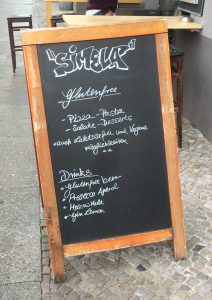 "SIMELA"
Glutenfree
- Pizza - Pasta
- Salate - Desserts
* auch Laktosefrei und Vegane
möglichkeiten
Drinks
* glutenfree beer
* Prosecco Aperol
* Moscow Mule
* Gin Lemon